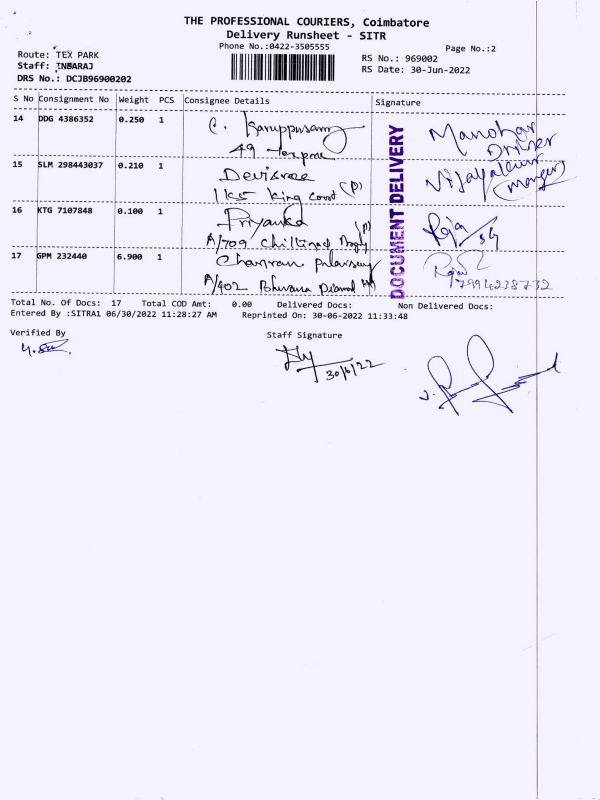 THE PROFESSIONAL COURIERS, Coimbatore
Delivery Runsheet - SITR
Phone No.:0422-3505555
Page No.:2
Route: TEX PARK
RS No.: 969002
Staff: INBARAJ
RS Date: 30-Jun-2022
DRS No.: DCJB96900202
S No Consignment No Weight PCS Consignee Details Signature
14 DDG 4386352 0.250 1 C. Karuppusamy Manohar
49 Driver
15 SLM 298443037 0.210 1 Devisree Vijayakumar
1K5 King Court (P) (manger)
16 KTG 7107848 0.100 1 Priyanka (P) Raja/SG
A/709
17 GPM 232440 6.900 1
A/402 Bhuvana 7994238732
DOCUMENT DELIVERY
Total No. Of Docs: 17 Total COD Amt: 0.00 Delivered Docs: Non Delivered Docs:
Entered By :SITRA1 06/30/2022 11:28:27 AM Reprinted On: 30-06-2022 11:33:48
Verified By Staff Signature
30/6/22